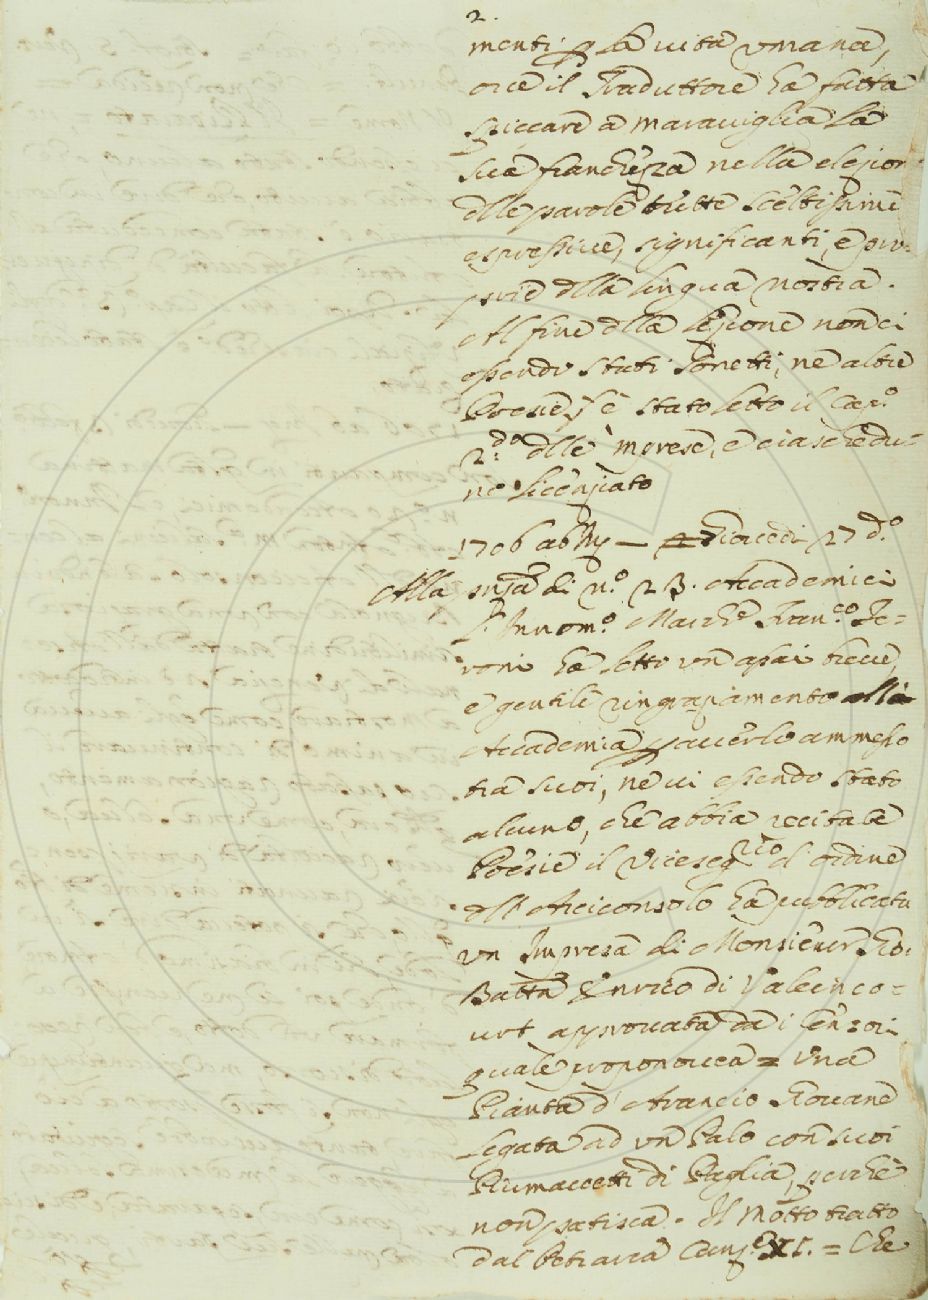 2.
menti p la vita umana,
ove il Traduttore ha fatta
spiccare a maraviglia la
sua franchezza nella elezion
dlle parole tutte sceltissime
espressive, significanti, e pro-
prie dlla lingua nostra.
Al fine dlla lezione non ci
essendo stati sonetti, ne altre
Poesie si è stato letto il Cap.o
2.do dlle morese, e ciaschedu-
no licenziato
1706 ab Inc — Giovedi 27 d.o
Alla pnza di n.o 23. Accademici
l'Innom.o March.e Fran.co Fe-
roni ha letto un assai breve,
e gentile ringraziamento alla
Accademia p averlo ammesso
tra suoi, ne vi essendo stato
alcuno, che abbia recitate
Poesie il Viceseg.rio d'ordine
dll' Arciconsolo ha pubblicata
un Impresa di Monsieur Gio.
Batta Enrico di Valeinco-
urt approvata da i Censori
quale proponeva = Una
Pianta d'Arancio Giovane
legata ad un Palo con suoi
Piumaccetti di Paglia, perche
non patisca. Il Motto tratto
dal Petrarca Canz.e XI. = Che